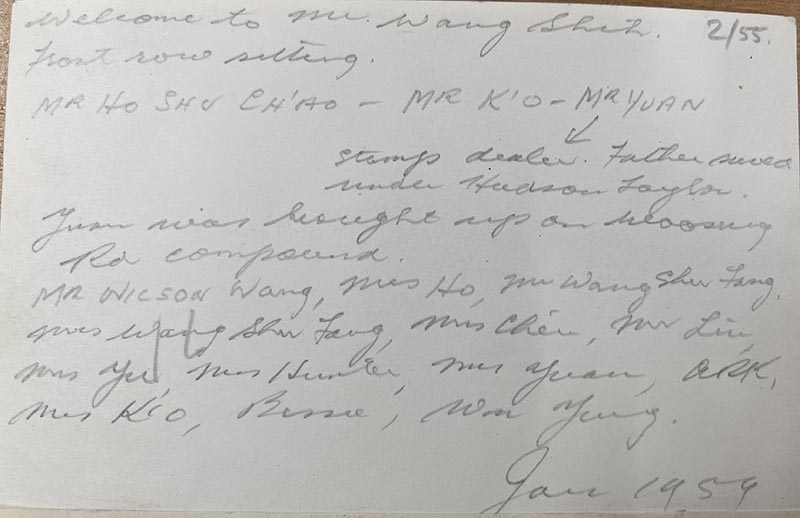 Welcome to Mr Wang Shih. 2/55.
Front row sitting.
MR HO SHU CH'AO – MR K'O – MR YUAN
stamps dealer. Father served
under Hudson Taylor.
Yuan was brought up on Woosung
Rd compound.
MR WILSON Wang, Mrs Ho, Mr Wang Shu Fang,
Mrs Wang Shu Fang, Mrs Chen, Mr Lin,
Mrs Yu, Mrs Hunter, Mrs Yuan, ARK,
Mrs K'O, Bessie, Wm Yung.
Jan 1959